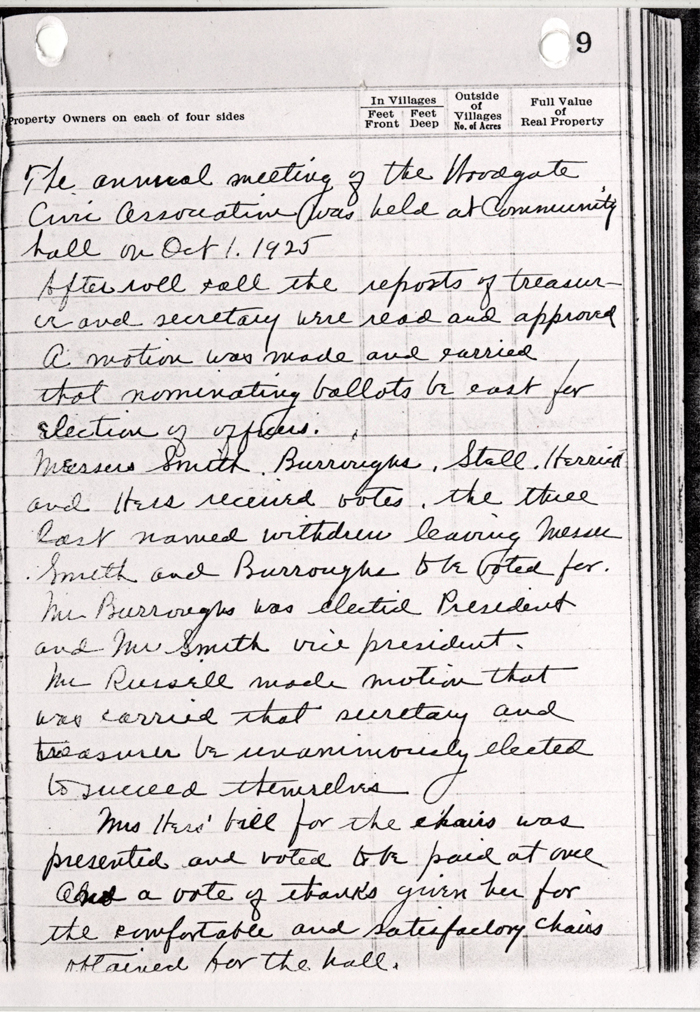 9
Property Owners on each of four sides
In Villages
Feet Front
Feet Deep
Outside of Villages No. of Acres
Full Value of Real Property
The annual meeting of the Woodgate
Civic Association was held at Community
hall on Oct 1. 1925
After roll call the reports of treasur-
er and secretary were read and approved
A motion was made and carried
that nominating ballots be cast for
election of officers.
Messers Smith, Burroughs, Stell, Herrick
and Hess received votes, the three
last named withdrew leaving Messer
Smith and Burroughs to be voted for.
Mr Burroughs was elected President
and Mr Smith vice president.
Mr Russell made motion that
was carried that secretary and
treasurer be unanimously elected
to succeed themselves
Mrs Hess' bill for the chairs was
presented and voted to be paid at once
And a vote of thanks given her for
the comfortable and satisfactory chairs
obtained for the hall.